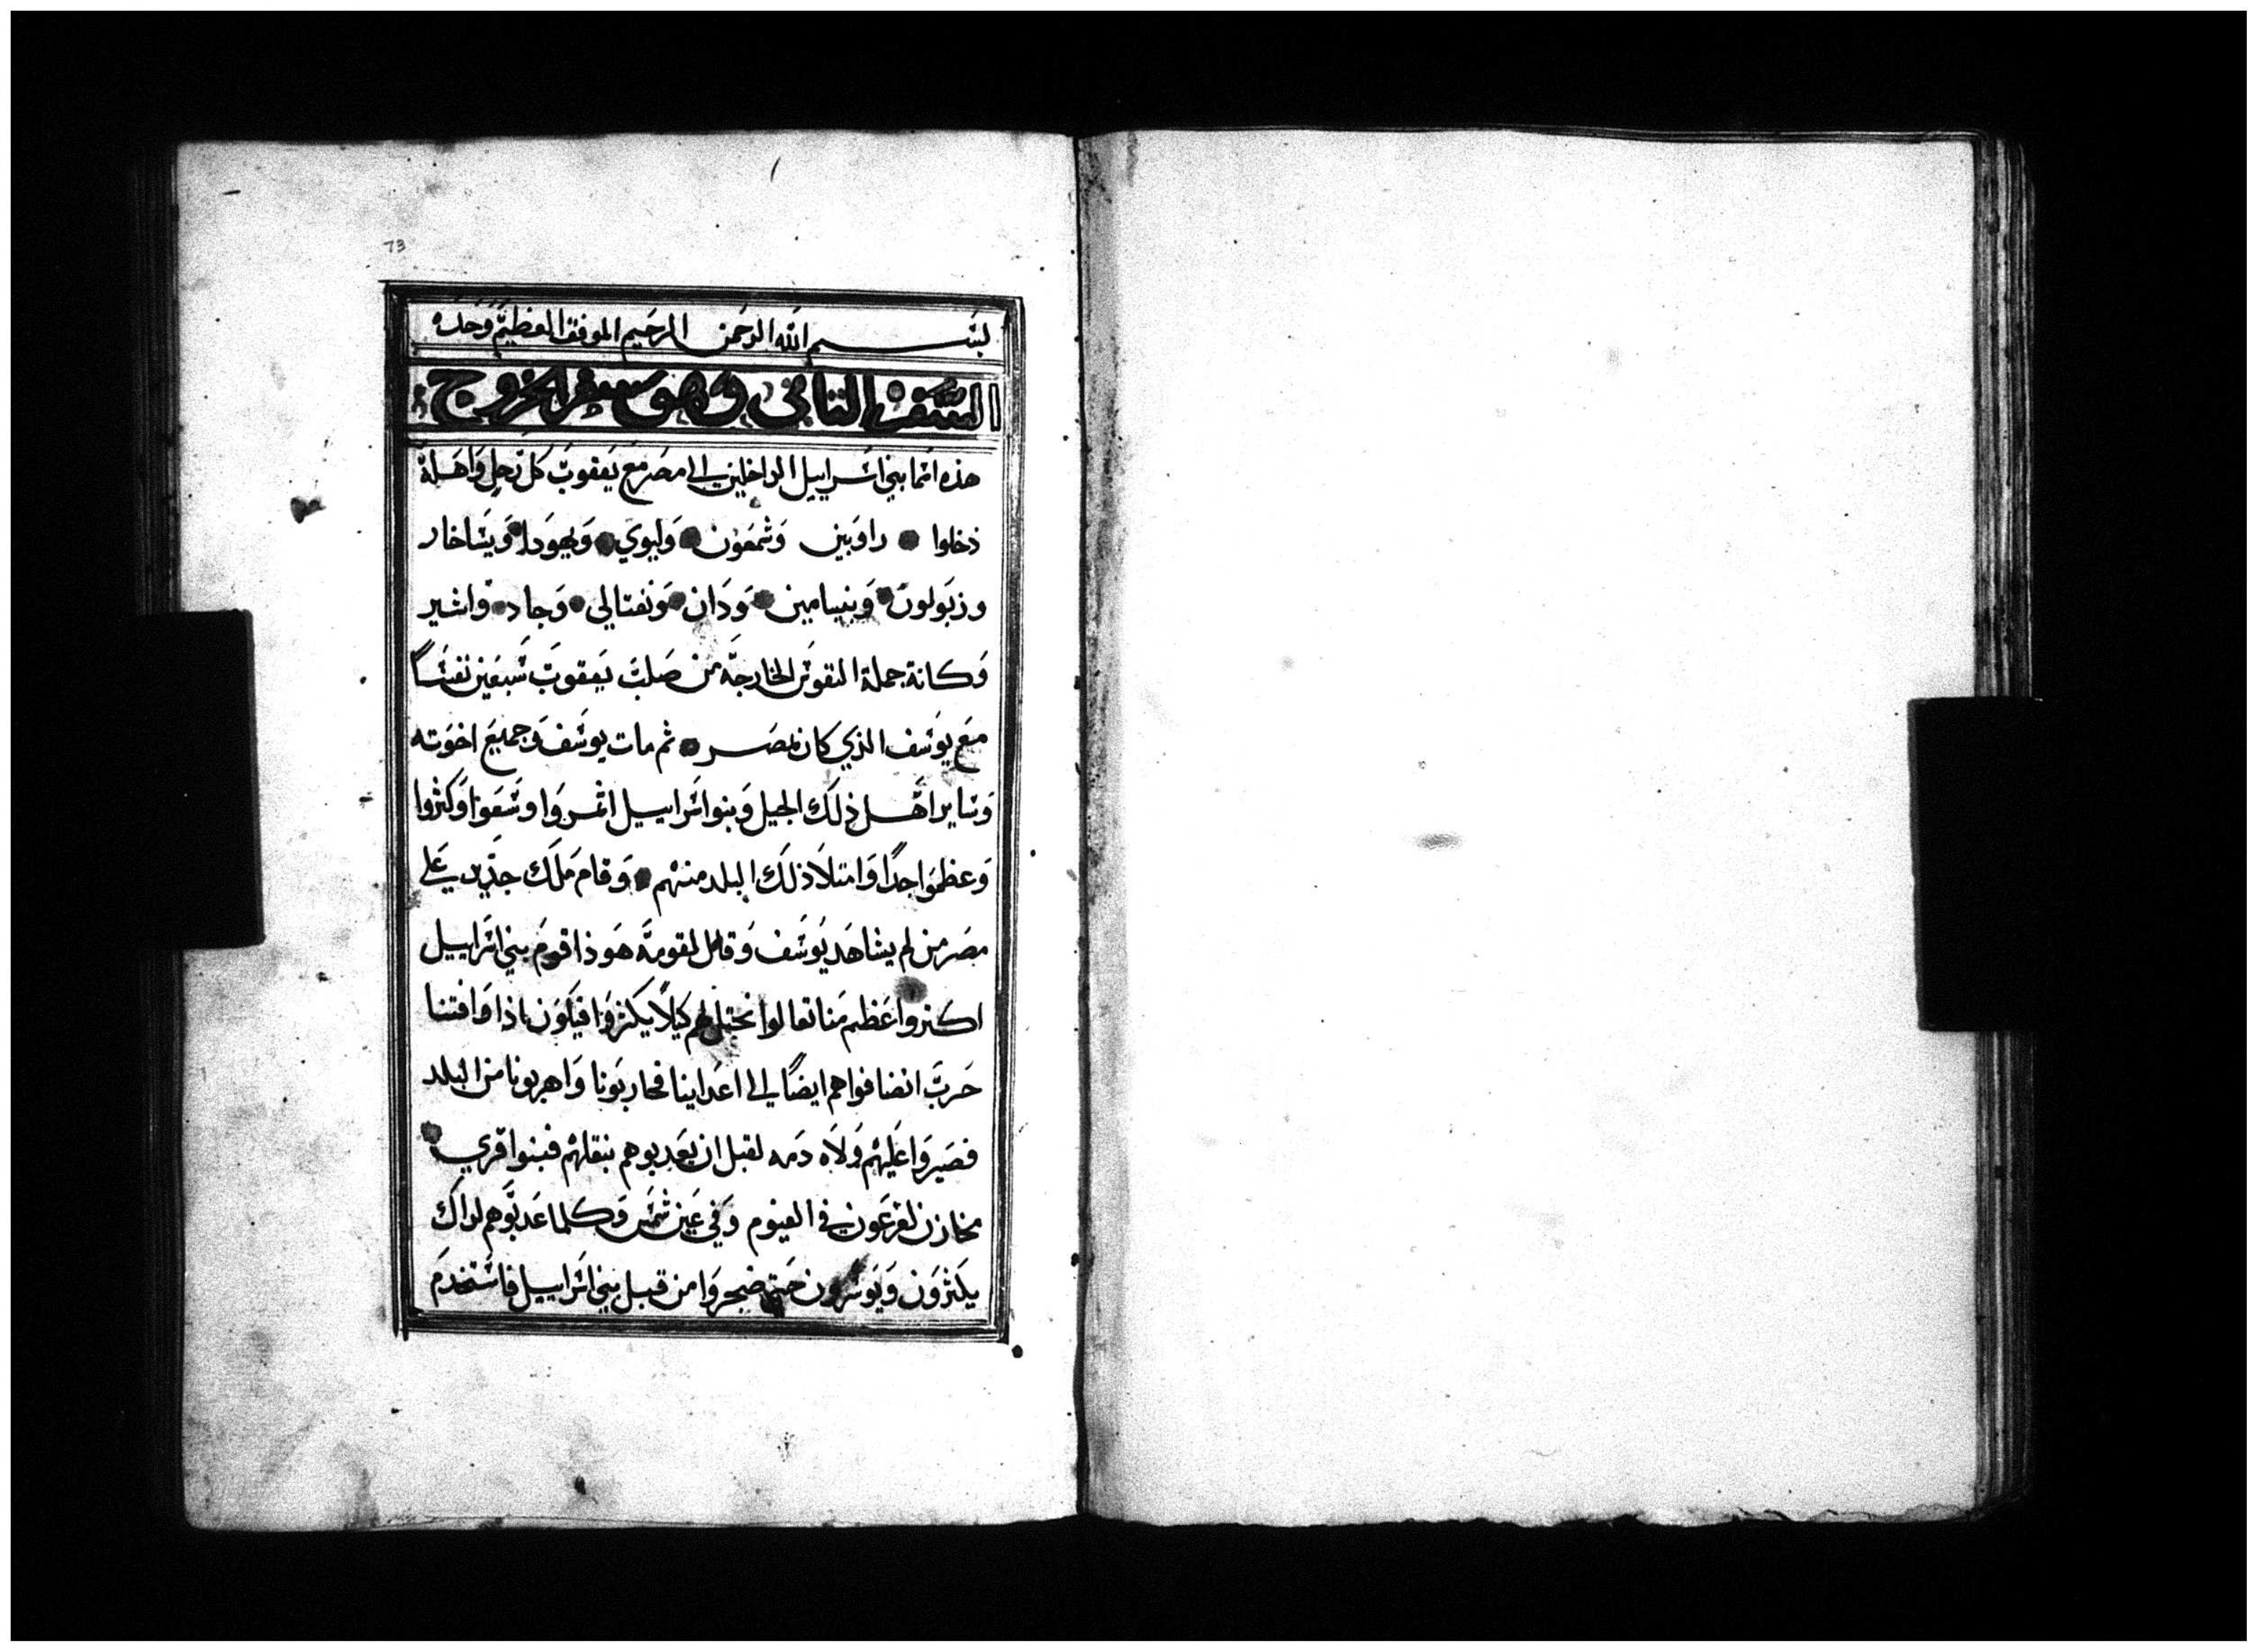 73
بسم الله الرحمن الرحيم الموفق العظيم وحده
السفر الثاني وهو سفر الخروج
هذه اسما بني اسراييل الداخلين الى مصر مع يعقوب كل رجل واهله
دخلوا • راوبين وشمعون • وليوي • ويهودا • ويساخار
وزبولون • وبنيامين • ودان • ونفتالي • وجاد • واشير
وكانة جملة النفوس الخارجه من صلب يعقوب سبعين نفساً
مع يوسف الذي كان بمصر • ثم مات يوسف وجميع اخوته
وساير اهل ذلك الجيل وبنوا اسراييل اثمروا وسعوا وكثروا
وعظموا جداً وامتلا ذلك البلد منهم • وقام ملك جديد على
مصر من لم يشاهد يوسف وقال لقومه هوذا قوم بني اسراييل
اكثر واعظم منا تعالوا نحتل لهم كيلا يكثروا فيكون اذا وافتنا
حرب انضافوا هم ايضاً الى اعداينا فحاربونا واهربونا من البلد
فصيروا عليهم ولاه دمه لقبل ان يعدبوهم بثقلهم فبنوا قري
مخازن لفرعون في الفيوم وفي عين شمس وكلما عدبوهم لذاك
يكثرون وينشرون حتى ضجروا من قبل بني اسراييل فاستخدم